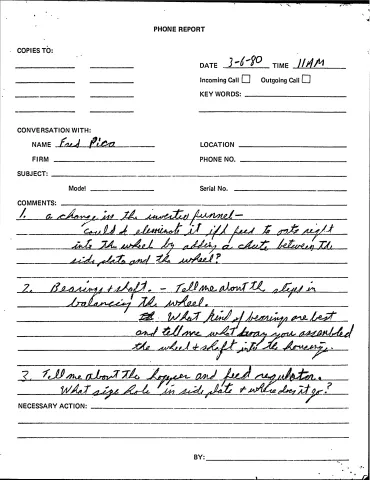 PHONE REPORT
COPIES TO:
DATE 3-6-80 TIME 11AM
Incoming Call Outgoing Call
KEY WORDS:
CONVERSATION WITH:
NAME Fred Pico LOCATION
FIRM PHONE NO.
SUBJECT:
Model Serial No.
COMMENTS:
1. a change in the inverted funnel—
Could I eleminate it if I feed to oats right
into the wheel by adding a chute between the
side plate and the wheel?
2. Bearings + shaft. - Tell me about the steps in
balancing the wheel.
What kind of bearings are best
and tell me what way you assembled
the wheel + shaft into the housing.
3. Tell me about the hopper and feed regulator.
What size hole in side plate + where does it go?
NECESSARY ACTION:
BY: